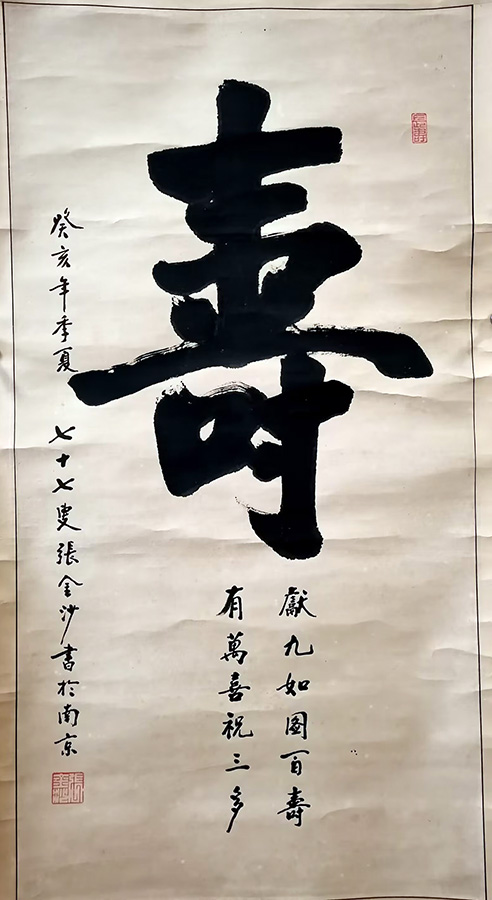 壽
獻九如图百壽
有萬喜祝三多
癸亥年季夏 七十七叟張金沙書於南京